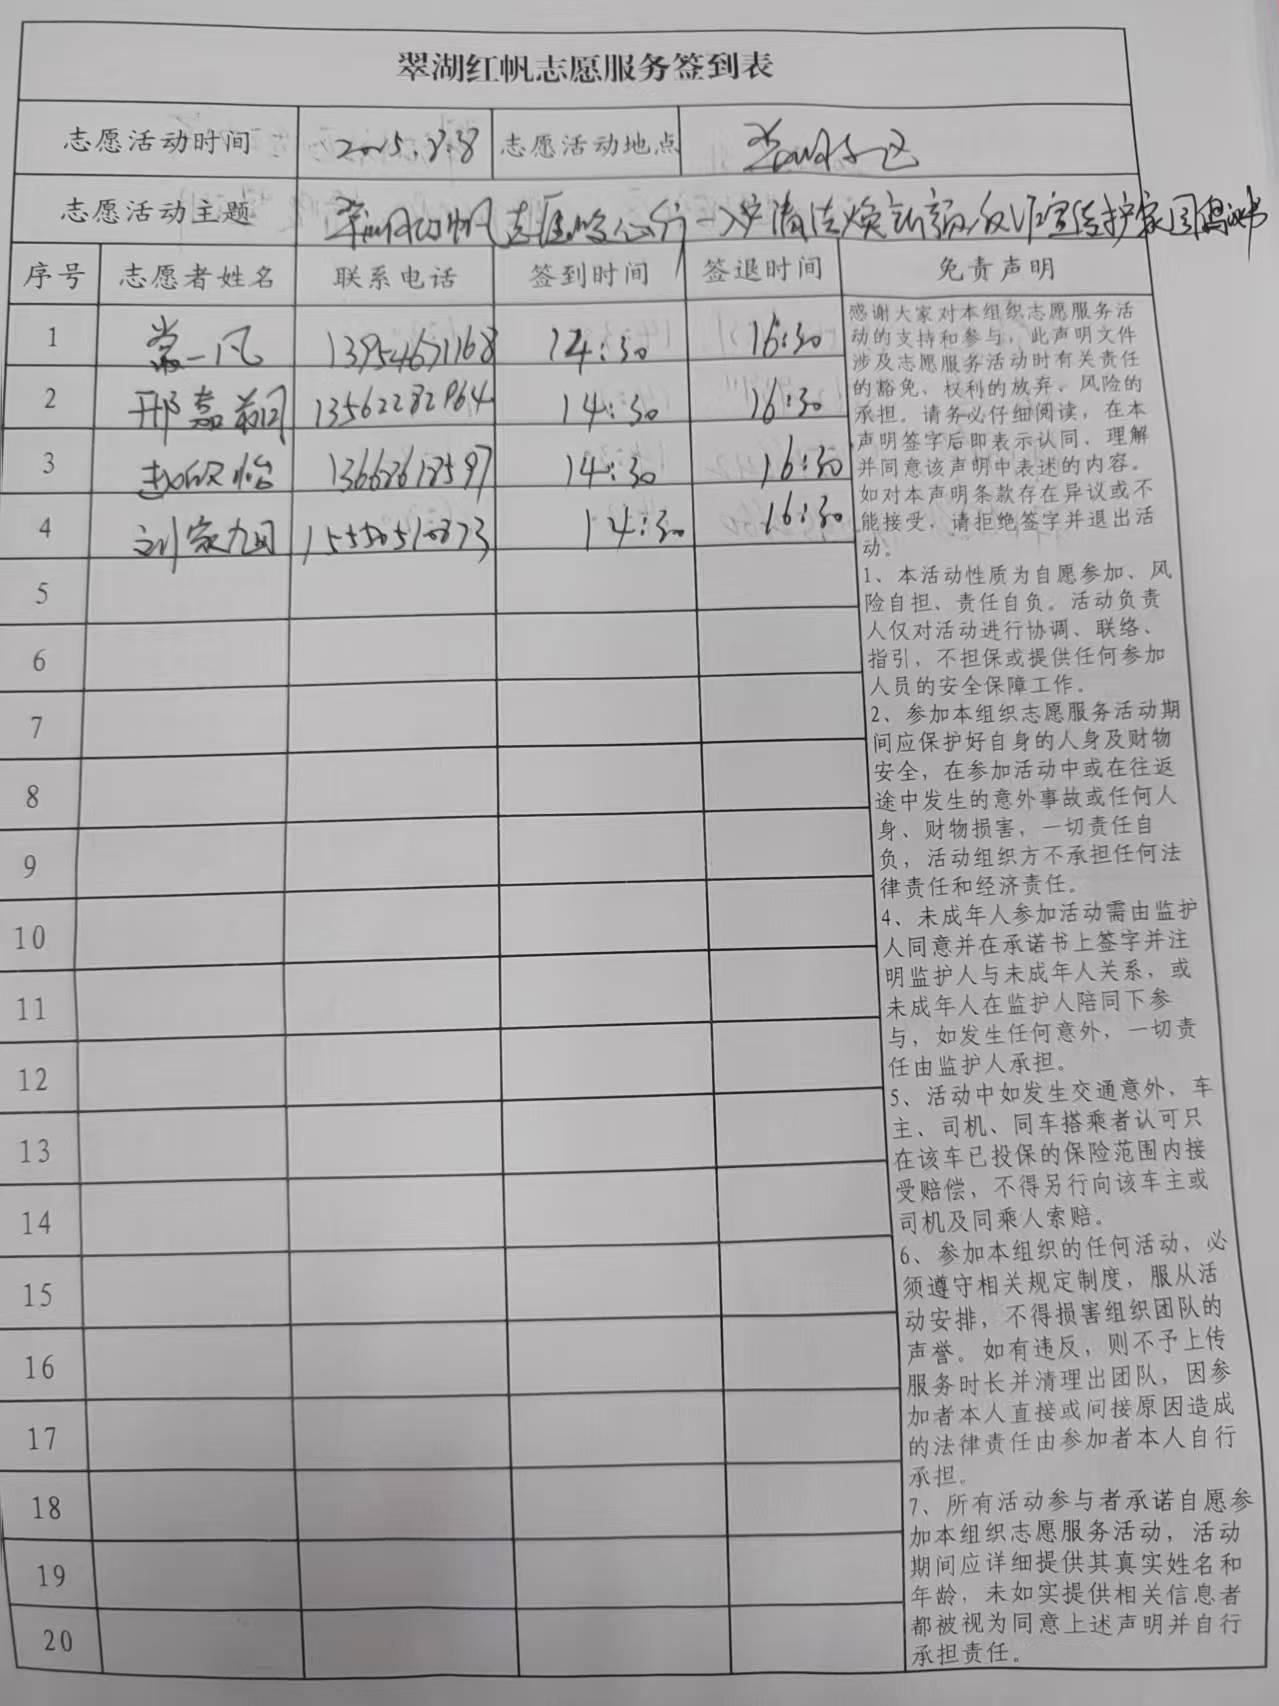 翠湖红帆志愿服务签到表
志愿活动时间 2025.8.8 志愿活动地点
志愿活动主题
序号 志愿者姓名 联系电话 签到时间 签退时间 免责声明
1 常一凡 13954671168 14:30 16:30
2 邢嘉 13562282964 14:30 16:30
3 赵欣怡 14:30 16:30
4 刘家 14:30 16:30
5
6
7
8
9
10
11
12
13
14
15
16
17
18
19
20
感谢大家对本组织志愿服务活
动的支持和参与，此声明文件
涉及志愿服务活动时有关责任
的豁免、权利的放弃、风险的
承担。请务必仔细阅读，在本
声明签字后即表示认同、理解
并同意该声明中表述的内容。
如对本声明条款存在异议或不
能接受，请拒绝签字并退出活
动。
1、本活动性质为自愿参加、风
险自担、责任自负。活动负责
人仅对活动进行协调、联络、
指引，不担保或提供任何参加
人员的安全保障工作。
2、参加本组织志愿服务活动期
间应保护好自身的人身及财物
安全，在参加活动中或在往返
途中发生的意外事故或任何人
身、财物损害，一切责任自
负，活动组织方不承担任何法
律责任和经济责任。
4、未成年人参加活动需由监护
人同意并在承诺书上签字并注
明监护人与未成年人关系，或
未成年人在监护人陪同下参
与，如发生任何意外，一切责
任由监护人承担。
5、活动中如发生交通意外，车
主、司机、同车搭乘者认可只
在该车已投保的保险范围内接
受赔偿，不得另行向该车主或
司机及同乘人索赔。
6、参加本组织的任何活动，必
须遵守相关规定制度，服从活
动安排，不得损害组织团队的
声誉。如有违反，则不予上传
服务时长并清理出团队，因参
加者本人直接或间接原因造成
的法律责任由参加者本人自行
承担。
7、所有活动参与者承诺自愿参
加本组织志愿服务活动，活动
期间应详细提供其真实姓名和
年龄，未如实提供相关信息者
都被视为同意上述声明并自行
承担责任。